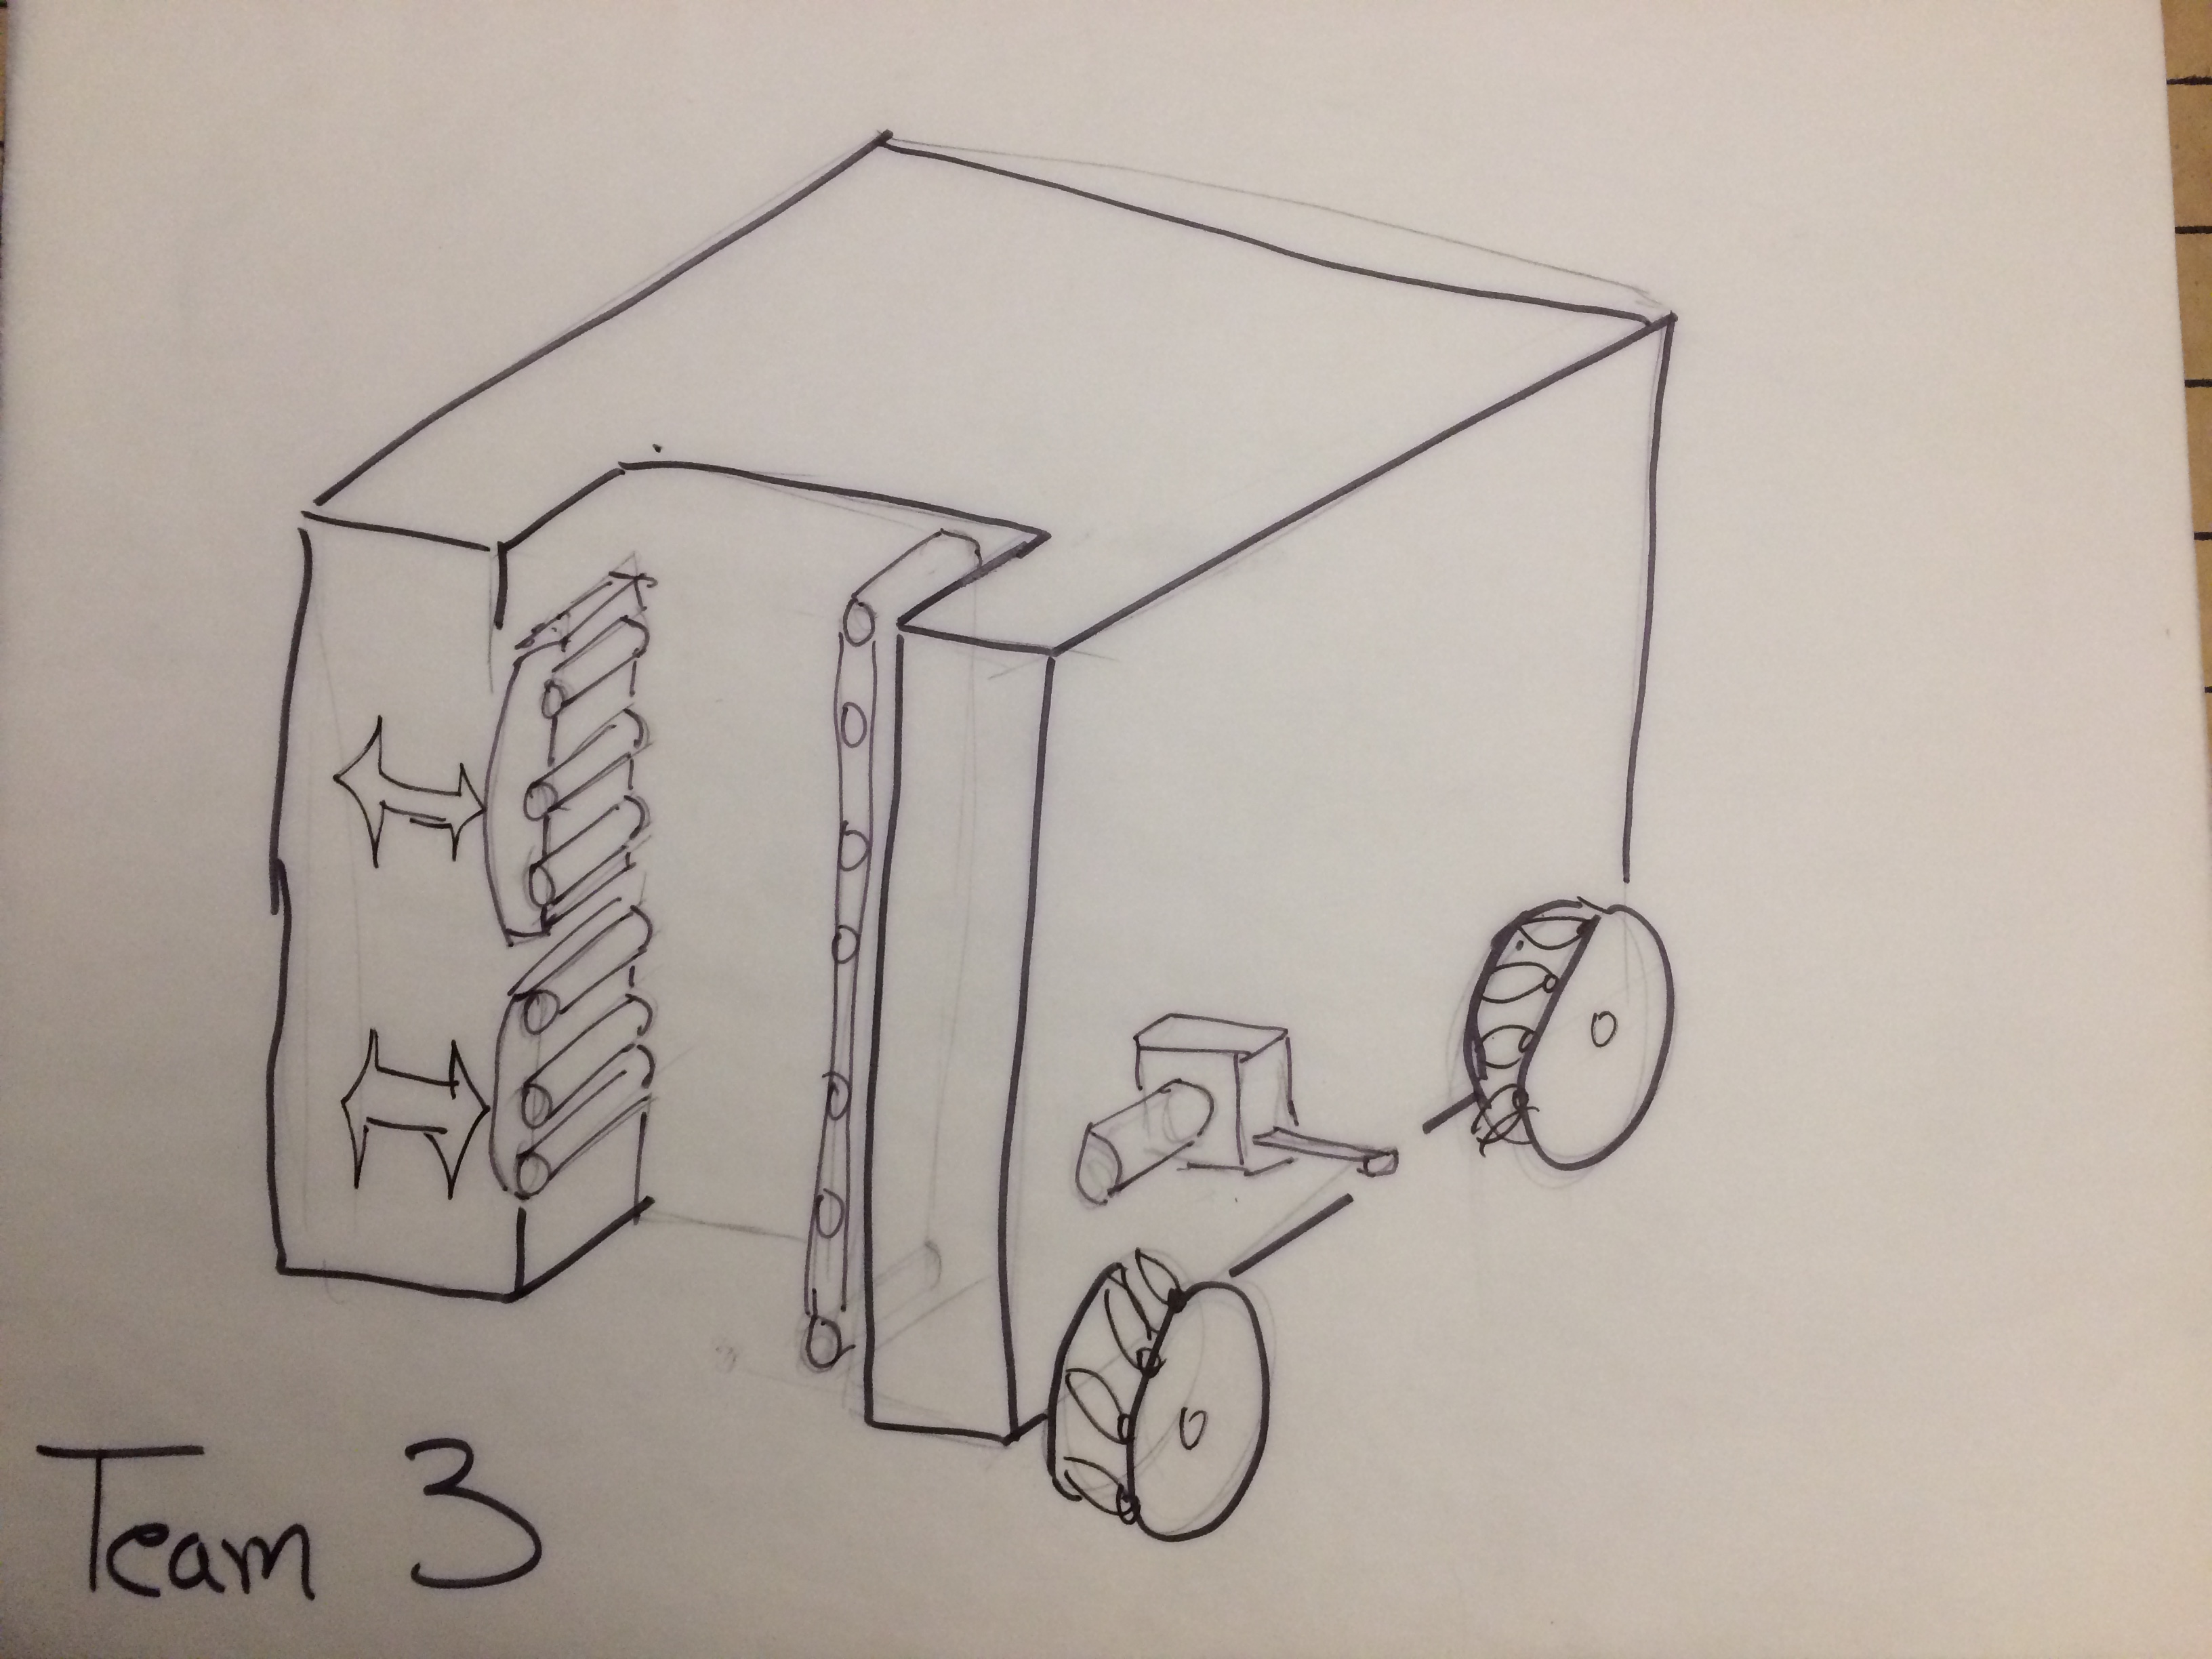 Team 3